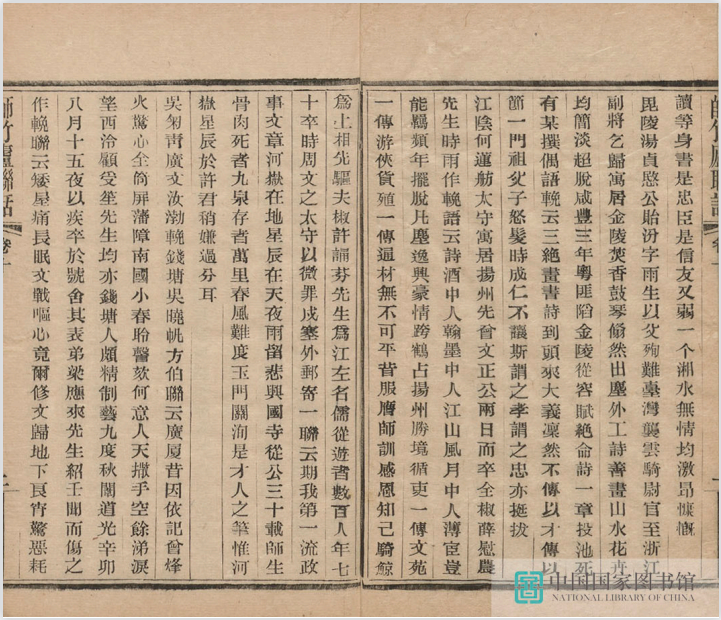 師竹廬聯話
卷一
一
讀等身書是忠臣是信友又弱一个湘水無情均激昂慷慨
毘陵湯貞愍公貽汾字雨生以父殉難臺灣襲雲騎尉官至浙江
副將乞歸寓居金陵焚香鼓琴翛然出塵外工詩善畫山水花卉
均簡淡超脫咸豐三年粵匪陷金陵從容賦絕命詩一章投池死
有某撰偶語輓云三絕畫書詩到頭來大義凜然不傳以才傳以
節一門祖父子怒髮時成仁不讓斯謂之孝謂之忠亦挺拔
江陰何蓮舫太守寓居揚州先曾文正公兩日而卒全椒薛慰農
先生時雨作輓語云詩酒中人翰墨中人江山風月中人薄宦豈
能羈頻年擺脫凡塵逸興豪情跨鶴占揚州勝境循吏一傳文苑
一傳游俠貨殖一傳通材無不可平昔服膺師訓感恩知己騎鯨
為上相先驅夫椒許誦芬先生為江左名儒從遊者數百人年七
十卒時周文之太守以微罪戍塞外郵寄一聯云期我第一流政
事文章河嶽在地星辰在天夜雨留悲興國寺從公三十載師生
骨肉死者九泉存者萬里春風難度玉門關洵是才人之筆惟河
嶽星辰於許君稍嫌過分耳
吳菊青廣文汝渤輓錢塘吳曉帆方伯聯云廣廈昔因依記曾烽
火驚心全省屏藩障南國小春聆謦欬何意人天撒手空餘涕淚
望西泠顧受笙先生均亦錢塘人頗精制藝九度秋闈道光辛卯
八月十五夜以疾卒於號舍其表弟梁應來先生紹壬聞而傷之
作輓聯云矮屋痛長眠文戰嘔心竟爾修文歸地下良宵驚惡耗
師竹廬聯話
卷一
二
中国国家图书馆
NATIONAL LIBRARY OF CHINA